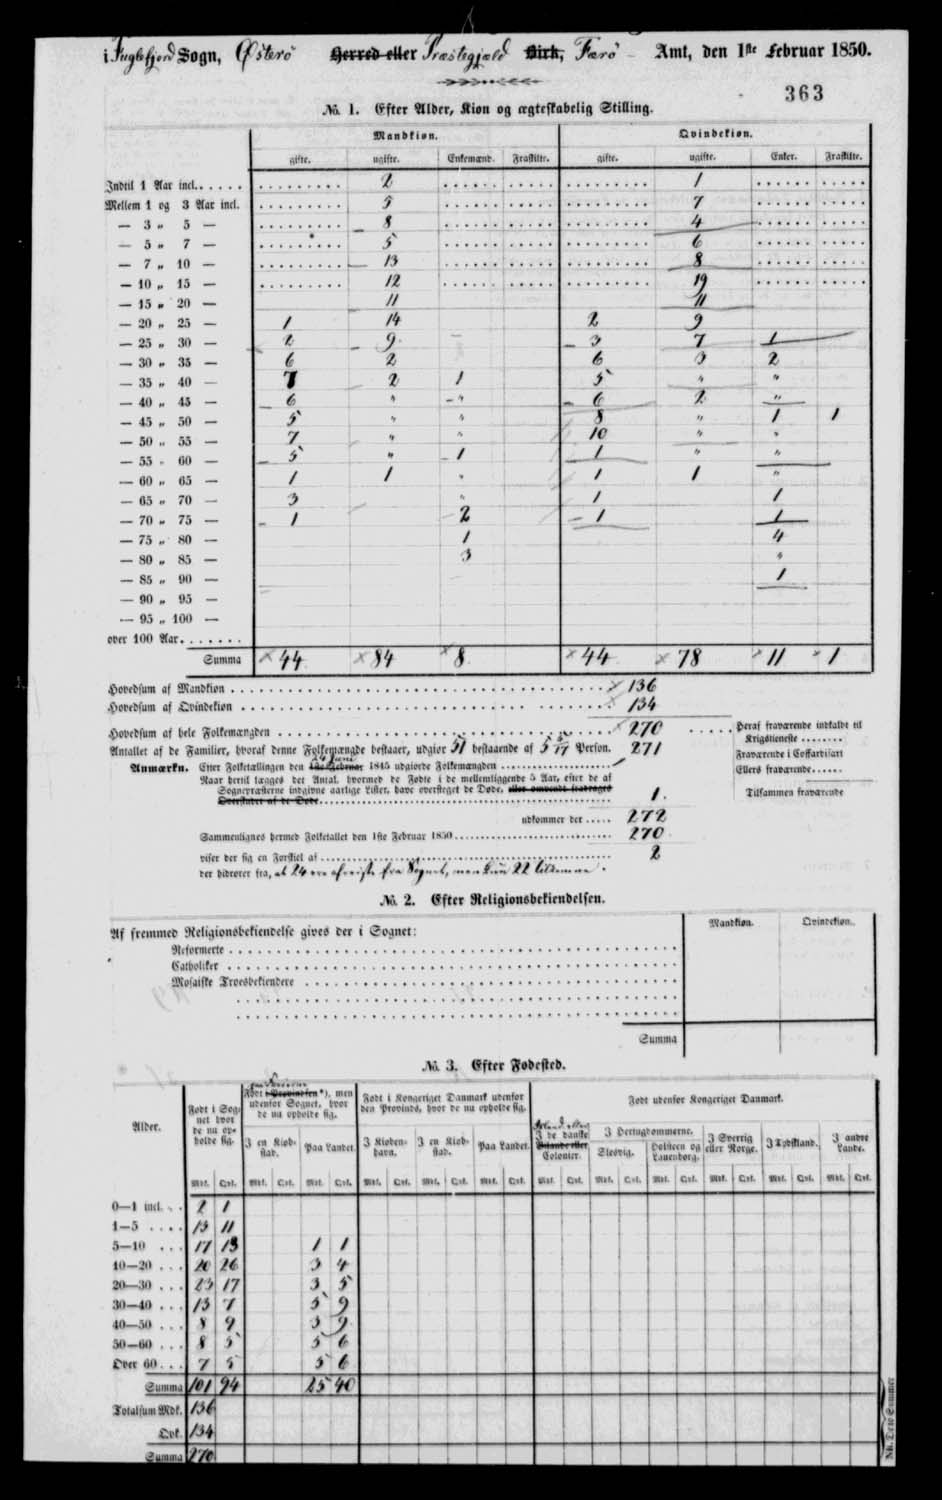 i Fuglefjord Sogn, Østerø Herred eller Præstegjæld Birk, Færø Amt, den 1ste Februar 1850.
363
No. 1. Efter Alder, Kiøn og ægteskabelig Stilling.
Mandkiøn. Qvindekiøn.
gifte. ugifte. Enkemænd. Fraskilte. gifte. ugifte. Enker. Fraskilte.
Indtil 1 Aar incl. 2 1
Mellem 1 og 3 Aar incl. 5 7
— 3 „ 5 — 8 4
— 5 „ 7 — 5 6
— 7 „ 10 — 13 8
— 10 „ 15 — 12 19
— 15 „ 20 — 11 11
— 20 „ 25 — 1 14 2 9
— 25 „ 30 — 2 9 3 7 1
— 30 „ 35 — 6 2 6 3 2
— 35 „ 40 — 7 2 1 5 „ „
— 40 „ 45 — 6 „ „ 6 2 „
— 45 „ 50 — 5 „ „ 8 „ 1 1
— 50 „ 55 — 7 „ „ 10 „ „
— 55 „ 60 — 5 „ 1 1 „ „
— 60 „ 65 — 1 1 „ 1 1 „
— 65 „ 70 — 3 „ 1 1
— 70 „ 75 — 1 2 1 1
— 75 „ 80 — 1 4
— 80 „ 85 — 3 „
— 85 „ 90 — 1
— 90 „ 95 —
— 95 „ 100 —
over 100 Aar.
Summa 44 84 8 44 78 11 1
Hovedsum af Mandkiøn 136
Hovedsum af Qvindekiøn 134
Hovedsum af hele Folkemængden 270
Heraf fraværende indkaldte til
Krigstieneste
Antallet af de Familier, hvoraf denne Folkemængde bestaaer, udgiør 51 bestaaende af 5 5/17 Person. 271
Fraværende i Coffardifart
24 Juni
Anmærkn. Efter Folketællingen den 1ste Februar 1845 udgiorde Folkemængden
Ellers fraværende
Naar hertil lægges det Antal, hvormed de Fødte i de mellemliggende 5 Aar, efter de af
Sognepræsterne indgivne aarlige Lister, have oversteget de Døde, eller omvendt fradrages
Overskudet af de Døde 1.
Tilsammen fraværende
udkommer der 272
Sammenlignes hermed Folketallet den 1ste Februar 1850 270
viser der sig en Forskiel af 2
der hidrører fra, at 24 ere afreiste fra Sognet, men kun 22 tilkomne.
No. 2. Efter Religionsbekiendelsen.
Mandkiøn. Qvindekiøn.
Af fremmed Religionsbekiendelse gives der i Sognet:
Reformerte
Catholiker
Mosaiske Troesbekiendere
Summa
No. 3. Efter Fødested.
Alder.
Født i Sognet hvor de nu opholde sig.
Født i Provindsen*), men udenfor Sognet, hvor de nu opholde sig.
Født i Kongeriget Danmark udenfor den Provinds, hvor de nu opholde sig.
Født udenfor Kongeriget Danmark.
I en Kiøbstad. Paa Landet. I Kiøbenhavn. I en Kiøbstad. Paa Landet.
I de danske Bilande eller Colonier. I Hertugdømmerne. Slesvig. Holsteen og Lauenborg. I Sverrig eller Norge. I Tydskland. I andre Lande.
Mdk. Qvk. Mdk. Qvk. Mdk. Qvk. Mdk. Qvk. Mdk. Qvk. Mdk. Qvk. Mdk. Qvk. Mdk. Qvk. Mdk. Qvk. Mdk. Qvk. Mdk. Qvk. Mdk. Qvk.
0—1 incl. 2 1
1—5 13 11
5—10 17 13 1 1
10—20 20 26 3 4
20—30 23 17 3 5
30—40 13 7 5 9
40—50 8 9 3 9
50—60 8 5 5 6
Over 60 7 5 5 6
Summa 101 94 25 40
Totalsum Mdk. 136
Qvk. 134
Summa 270